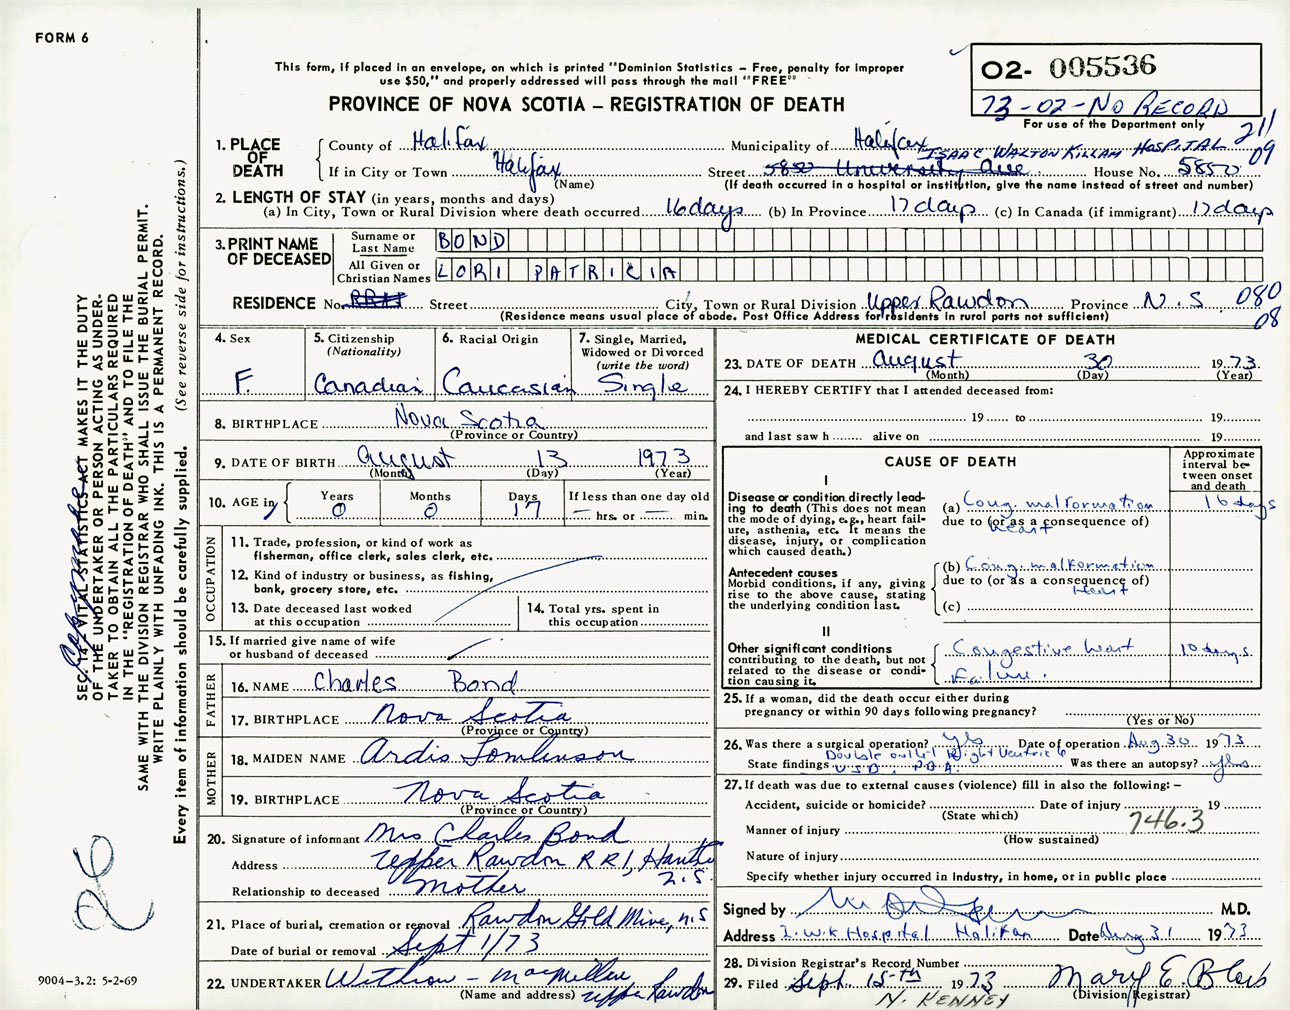 FORM 6
This form, if placed in an envelope, on which is printed "Dominion Statistics – Free, penalty for improper
use $50," and properly addressed will pass through the mail "FREE"
PROVINCE OF NOVA SCOTIA – REGISTRATION OF DEATH
02- 005536
73-02-NO RECORD
For use of the Department only
211
09
1. PLACE OF DEATH
County of Halifax Municipality of Halifax
ISAAC WALTON KILLAM HOSPITAL
If in City or Town Halifax Street 5850 University Ave. House No. 5850
(Name) (If death occurred in a hospital or institution, give the name instead of street and number)
2. LENGTH OF STAY (in years, months and days)
(a) In City, Town or Rural Division where death occurred 16 days (b) In Province 17 days (c) In Canada (if immigrant) 17 days
3. PRINT NAME OF DECEASED
Surname or Last Name BOND
All Given or Christian Names LORI PATRICIA
RESIDENCE No. Street City, Town or Rural Division Upper Rawdon Province N.S
(Residence means usual place of abode. Post Office Address for residents in rural parts not sufficient)
080
08
4. Sex F.
5. Citizenship (Nationality) Canadian
6. Racial Origin Caucasian
7. Single, Married, Widowed or Divorced (write the word) Single
8. BIRTHPLACE Nova Scotia
(Province or Country)
9. DATE OF BIRTH August 13 1973
(Month) (Day) (Year)
10. AGE in Years 0 Months 0 Days 17 If less than one day old — hrs. or — min.
OCCUPATION
11. Trade, profession, or kind of work as
fisherman, office clerk, sales clerk, etc.
12. Kind of industry or business, as fishing,
bank, grocery store, etc.
13. Date deceased last worked
at this occupation
14. Total yrs. spent in
this occupation
15. If married give name of wife
or husband of deceased
FATHER
16. NAME Charles Bond
17. BIRTHPLACE Nova Scotia
(Province or Country)
MOTHER
18. MAIDEN NAME Ardis Tomlinson
19. BIRTHPLACE Nova Scotia
(Province or Country)
20. Signature of informant Mrs Charles Bond
Address Upper Rawdon RR1, Hants
N.S.
Relationship to deceased Mother
21. Place of burial, cremation or removal Rawdon Gold Mine, N.S
Date of burial or removal Sept 1/73
22. UNDERTAKER Withrow - MacMillan
(Name and address) Upper Rawdon
MEDICAL CERTIFICATE OF DEATH
23. DATE OF DEATH August 30 1973
(Month) (Day) (Year)
24. I HEREBY CERTIFY that I attended deceased from:
19 to 19
and last saw h alive on 19
CAUSE OF DEATH
Approximate
interval be-
tween onset
and death
I
Disease or condition directly lead-
ing to death (This does not mean
the mode of dying, e.g., heart fail-
ure, asthenia, etc. It means the
disease, injury, or complication
which caused death.)
(a) Cong. malformation 16 days
due to (or as a consequence of)
heart
Antecedent causes
Morbid conditions, if any, giving
rise to the above cause, stating
the underlying condition last.
(b) Cong. malformation
due to (or as a consequence of)
Heart
(c)
II
Other significant conditions
contributing to the death, but not
related to the disease or condi-
tion causing it.
Congestive heart 10 days
Failure.
25. If a woman, did the death occur either during
pregnancy or within 90 days following pregnancy?
(Yes or No)
26. Was there a surgical operation? Yes Date of operation Aug 30 1973
Double outlet Right Ventricle
State findings V.S.D., P.D.A. Was there an autopsy? yes
27. If death was due to external causes (violence) fill in also the following: –
Accident, suicide or homicide? Date of injury 19
(State which)
746.3
Manner of injury
(How sustained)
Nature of injury
Specify whether injury occurred in industry, in home, or in public place
Signed by M.D.
Address I.W.K Hospital Halifax Date Aug 31 1973
28. Division Registrar's Record Number
29. Filed Sept. 15th 1973 Mary E. Blois
N. KENNEY (Division Registrar)
SEC. 14 – VITAL STATISTICS ACT MAKES IT THE DUTY
OF THE UNDERTAKER OR PERSON ACTING AS UNDER-
TAKER TO OBTAIN ALL THE PARTICULARS REQUIRED
IN THE "REGISTRATION OF DEATH" AND TO FILE THE
SAME WITH THE DIVISION REGISTRAR WHO SHALL ISSUE THE BURIAL PERMIT.
WRITE PLAINLY WITH UNFADING INK. THIS IS A PERMANENT RECORD.
Every item of information should be carefully supplied. (See reverse side for instructions.)
26
9004–3.2: 5-2-69